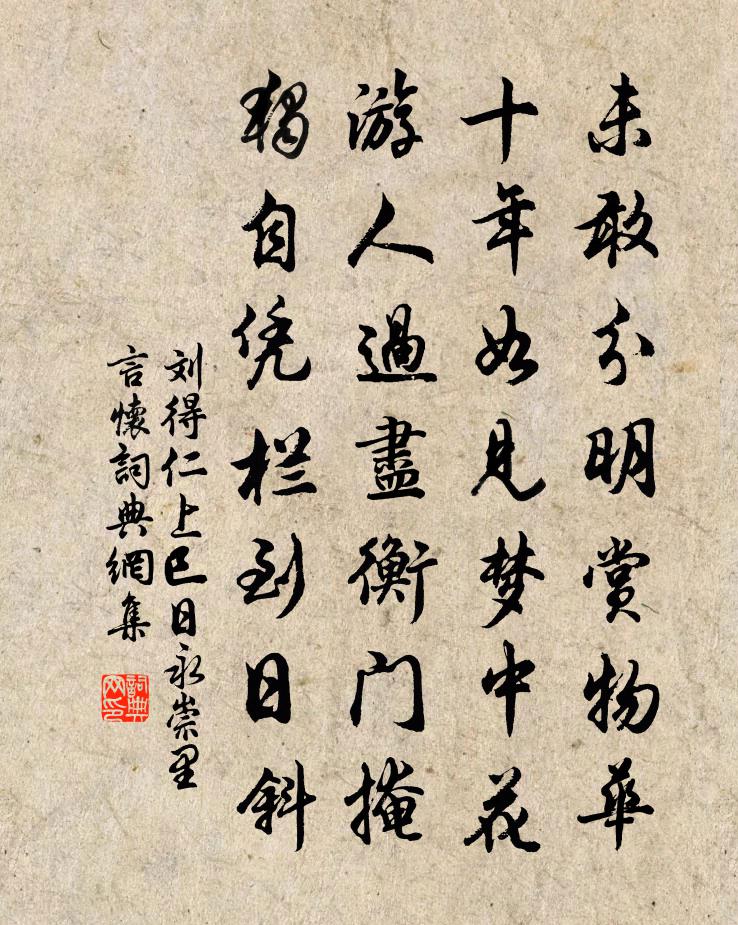 未敢分明赏物華
十年如见梦中花
游人過盡衡门掩
獨自凭栏到日斜
刘得仁上巳日永崇里
言懷詞典網集
詞典网印